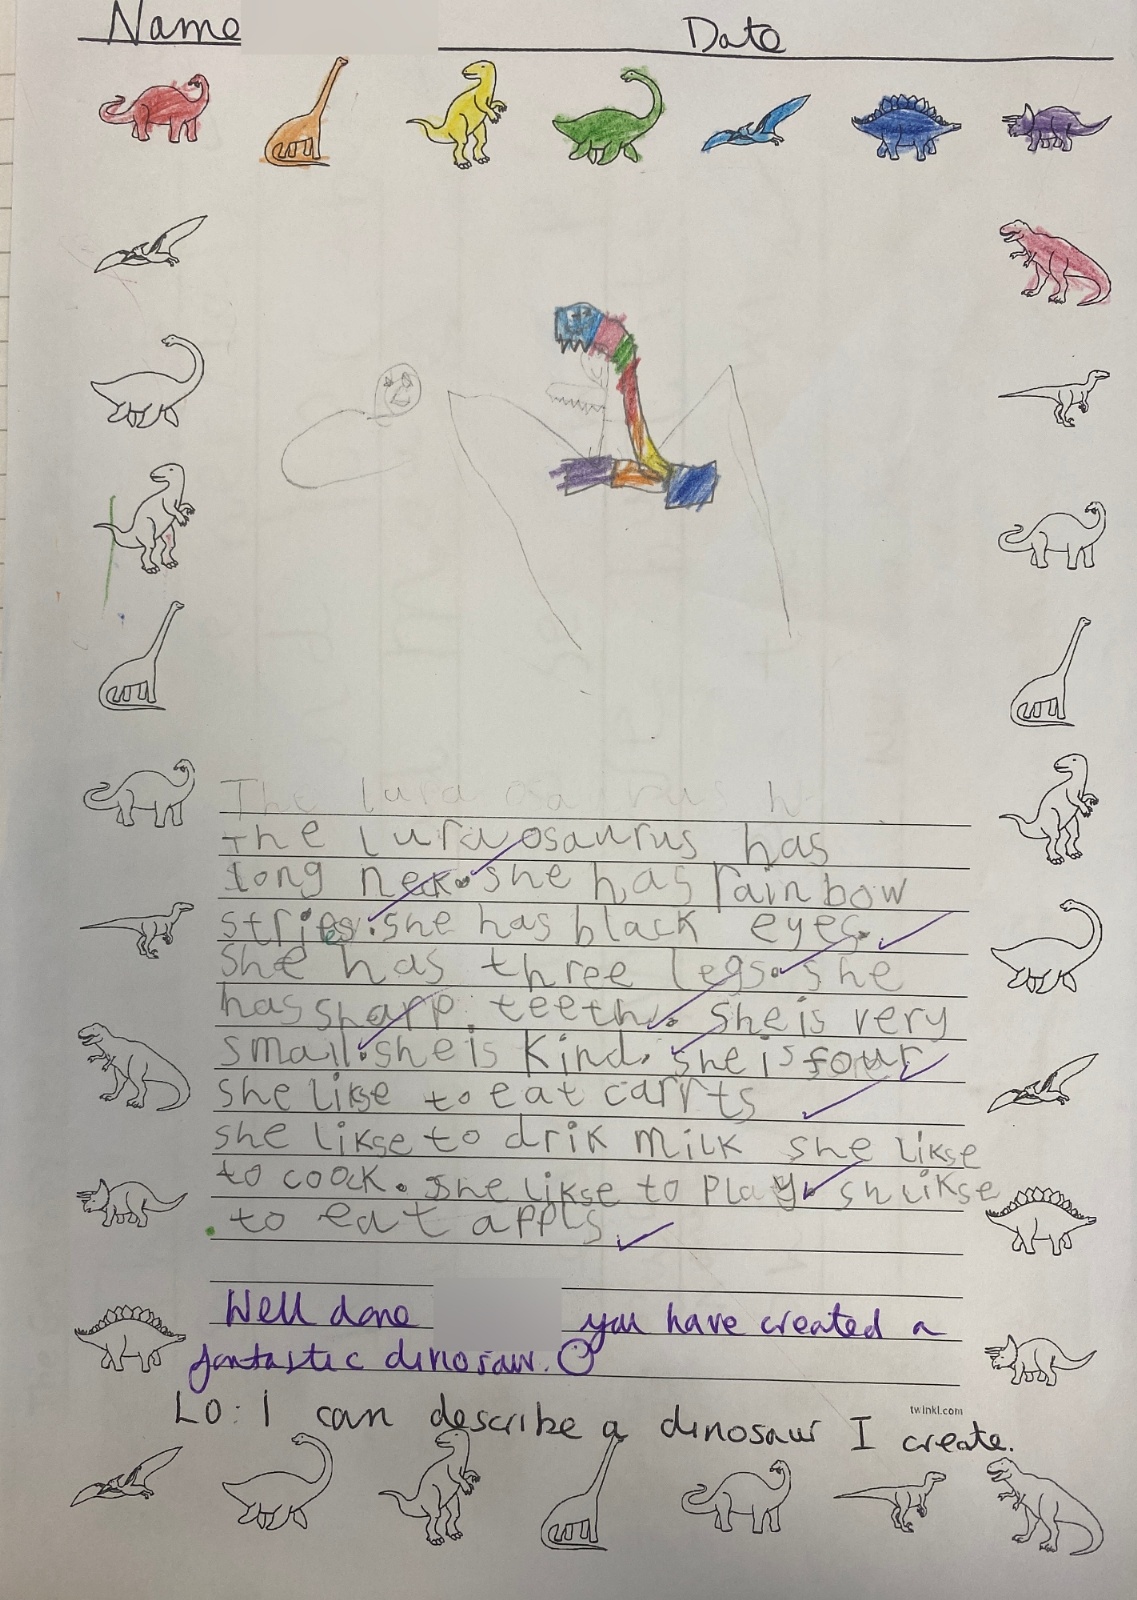 Name Date
The lura osaurus h
The luravosaurus has
long nek. she has rainbow
stries. she has black eyes.
She has three legs. she
has sharp teeth. she is very
small. she is kind. she is four
she likse to eat carrts
she likse to drik milk she likse
to cook. she likse to play. sh likse
. to eat appls.
Well done you have created a
fantastic dinosaur.
twinkl.com
LO: I can describe a dinosaur I create.